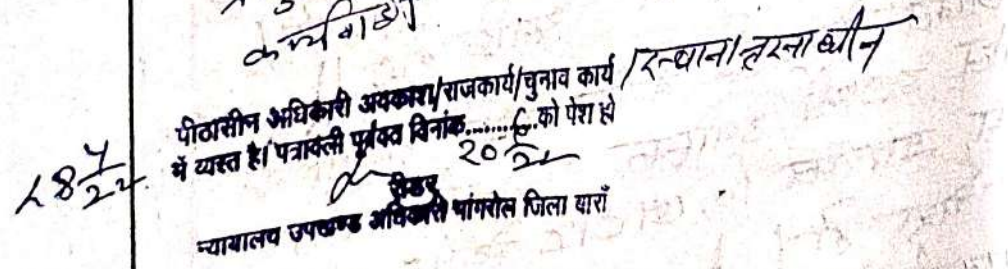 कार्यवाही
पीठासीन अधिकारी अवकाश/राजकार्य/चुनाव कार्य / स्थानान्तरनाधीन
में व्यस्त है। पत्रावली पूर्ववत दिनांक.........को पेश हो
28 4/22
20 6/22
रीडर
न्यायालय उपखण्ड अधिकारी मांगरोल जिला बाराँ